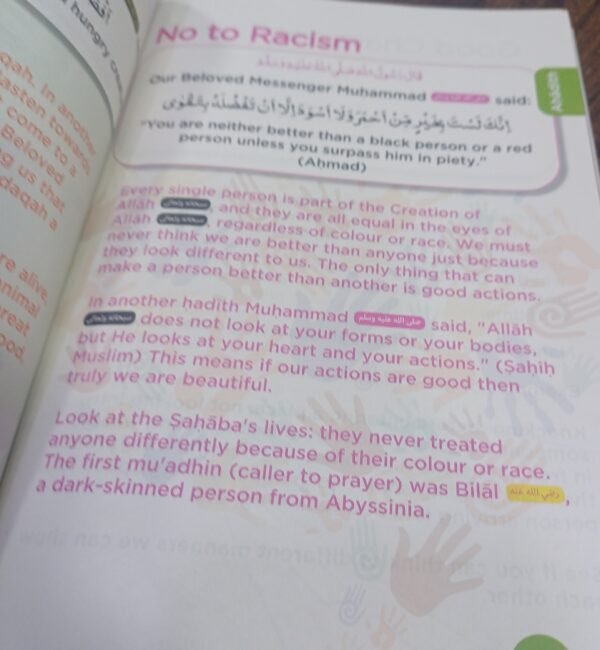 No to Racism
Our Beloved Messenger Muhammad صلى الله عليه وسلم said:
إِنَّكَ لَسْتَ بِخَيْرٍ مِّنْ أَحْمَرَ وَلَا أَسْوَدَ إِلَّا أَنْ تَفْضُلَهُ بِتَقْوَى
"You are neither better than a black person or a red
person unless you surpass him in piety."
(Aḥmad)
Aḥādīth
Every single person is part of the Creation of
Allāh سبحانه وتعالى, and they are all equal in the eyes of
Allāh سبحانه وتعالى, regardless of colour or race. We must
never think we are better than anyone just because
they look different to us. The only thing that can
make a person better than another is good actions.
In another hadīth Muhammad صلى الله عليه وسلم said, "Allāh
سبحانه وتعالى does not look at your forms or your bodies,
but He looks at your heart and your actions." (Ṣaḥīḥ
Muslim) This means if our actions are good then
truly we are beautiful.
Look at the Ṣaḥāba's lives: they never treated
anyone differently because of their colour or race.
The first mu'adhin (caller to prayer) was Bilāl رضي الله عنه,
a dark-skinned person from Abyssinia.
hungry
qah. In another
hasten toward
come to a
Beloved
us that
daqah a
re alive,
animal
reat
ood.